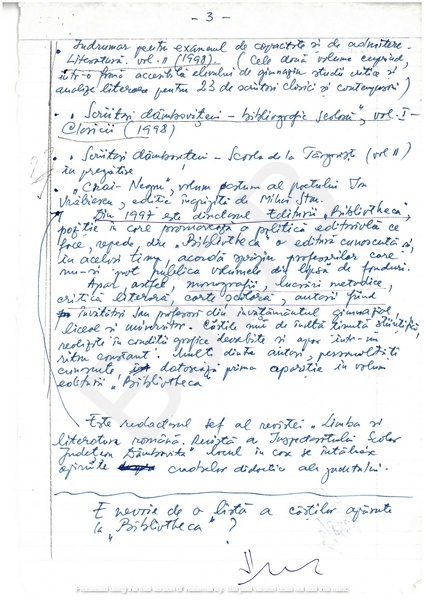 - 3 -
• Îndrumar pentru examenul de capacitate și de admitere.
Literatură. vol. II (1998). (Cele două volume cuprind,
într-o formă accesibilă elevului de gimnaziu studii critice și
analize literare pentru 23 de scriitori clasici și contemporani)
• „Scriitori dâmbovițeni – bibliografie școlară", vol. I –
Clasicii (1998)
• „Scriitori dâmboviteni – Școala de la Târgoviște (vol II)
în pregătire
• „Crai-Negru", volum postum al poetului Ion
Vrăbiescu, ediție îngrijită de Mihai Stan.
Din 1997 este directorul Editurii „Bibliotheca",
poziție din care promovează o politică editorială ce
face, repede, din „Bibliotheca" o editură cunoscută și,
în același timp, acordă sprijin profesorilor care
nu-și pot publica volumele din lipsă de fonduri.
Apar, astfel, monografii, lucrări metodice,
critică literară, carte școlară, autori fiind
învățători sau profesori din învățământul gimnazial,
liceal și universitar. Cărțile sunt de înaltă ținută științifică,
realizate în condiții grafice deosebite și apar într-un
ritm constant. Mulți dintre autori, personalități
cunoscute datorează prima apariție în volum
editurii „Bibliotheca"
Este redactorul șef al revistei „Limba și
literatura română. Revistă a Inspectoratului Școlar
Județean Dâmbovița" locul în care se întâlnesc
cadrelor didactice ale județului.
E nevoie de o listă a cărților apărute
la „Bibliotheca" ?